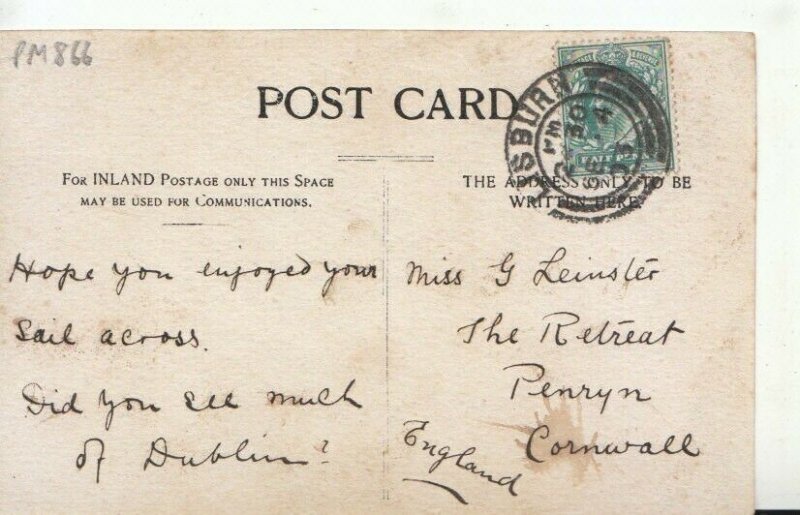 PM866
POST CARD
FOR INLAND POSTAGE ONLY THIS SPACE
MAY BE USED FOR COMMUNICATIONS.
THE ADDRESS ONLY TO BE
WRITTEN HERE
LISBURN
Hope you enjoyed your
sail across.
Did you see much
of Dublin?
Miss G Leinster
The Retreat
Penryn
Cornwall
England